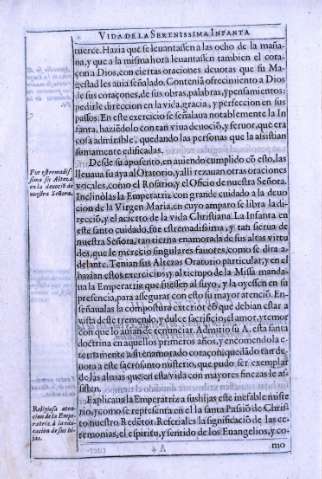 VIDA DE LA SERENISSIMA INFANTA
tuerce. Hazia que se leuantassen a las ocho de la maña-
na, y que a la misma hora leuantassen tambien el coraçon
a Dios, con ciertas oraciones deuotas que su Ma-
gestad les auia señalado. Contenia ofrecimiento a Dios
de sus coraçones, de sus obras, palabras, y pensamientos:
pedirle direccion en la vida, gracia, y perfeccion en sus
passos. En este exercicio se señalaua notablemente la In-
fanta, haziẽdolo con tan viua deuociõ, y feruor, que era
cosa admirable, quedando las personas que la assistian
sumamente edificadas.
Desde su aposento, en auiendo cumplido cõ esto, las
lleuaua su aya al Oratorio, y alli rezauan otras oraciones
vocales, como el Rosario, y el Oficio de nuestra Señora.
Inclinòlas la Emperatriz con grande cuidado a la deuo-
cion de la Virgen Maria, en cuyo amparo se libra la di-
reccio, y el acierto de la vida Christiana. La Infanta en
este santo cuidado, fue estremadissima, y tan sierua de
nuestra Señora, tan tierna enamorada de sus altas virtu-
des, que le merecio singulares fauores, como se dira a-
delante. Tenian sus Altezas Oratorio particular, y en el
hazian estos exercicios, y al tiẽpo de la Missa manda-
ua la Emperatriz que fuessen al suyo, y la oyessen en su
presencia, para assegurar con esto su mayor atenciõ. En-
señaualas la compostura exterior cõ que debian estar a
vista deste tremendo, y dulce sacrificio, el amor, y temor
con que lo auian de reuerenciar. Admitio su A. esta santa
doctrina en aquellos primeros años, y encomendola e-
ternamente a su enamorado coraçon, quedãdo tan de-
uota a este sacrosanto misterio, que pudo ser exemplar
de las almas que en esta vida con mayores finezas le as-
sisten.
Explicaua la Emperatriz a sus hijas este inefable miste-
rio, y como se representa en el la santa Passiõ de Chris-
to nuestro Redẽtor. Referiales la significaciõ de las ce-
remonias, el espiritu, y sentido de los Euangelios, y co-
mo
Fue estremadis-
sima su Alteza
en la deuociõ de
nuestra Señora.
Religiosa aten-
cion de la Empe-
ratriz